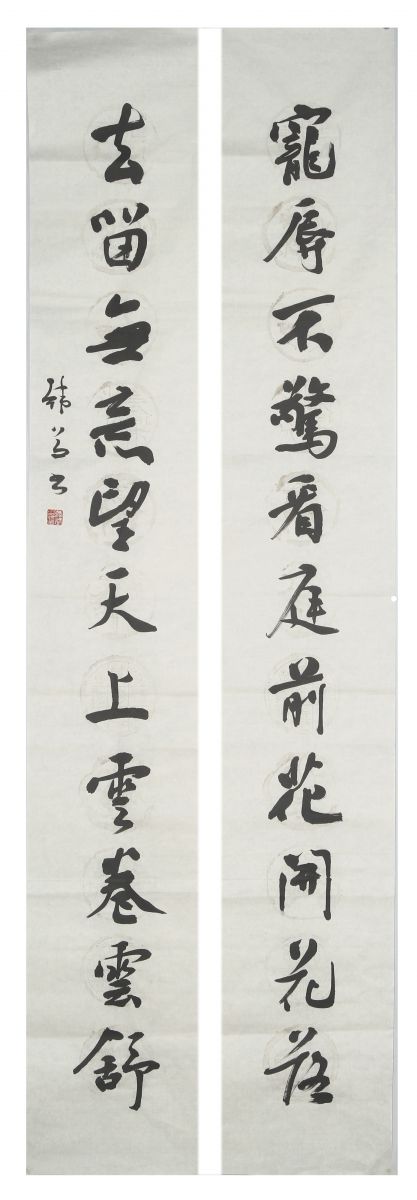 寵辱不驚看庭前花開花落
去留無意望天上雲卷雲舒